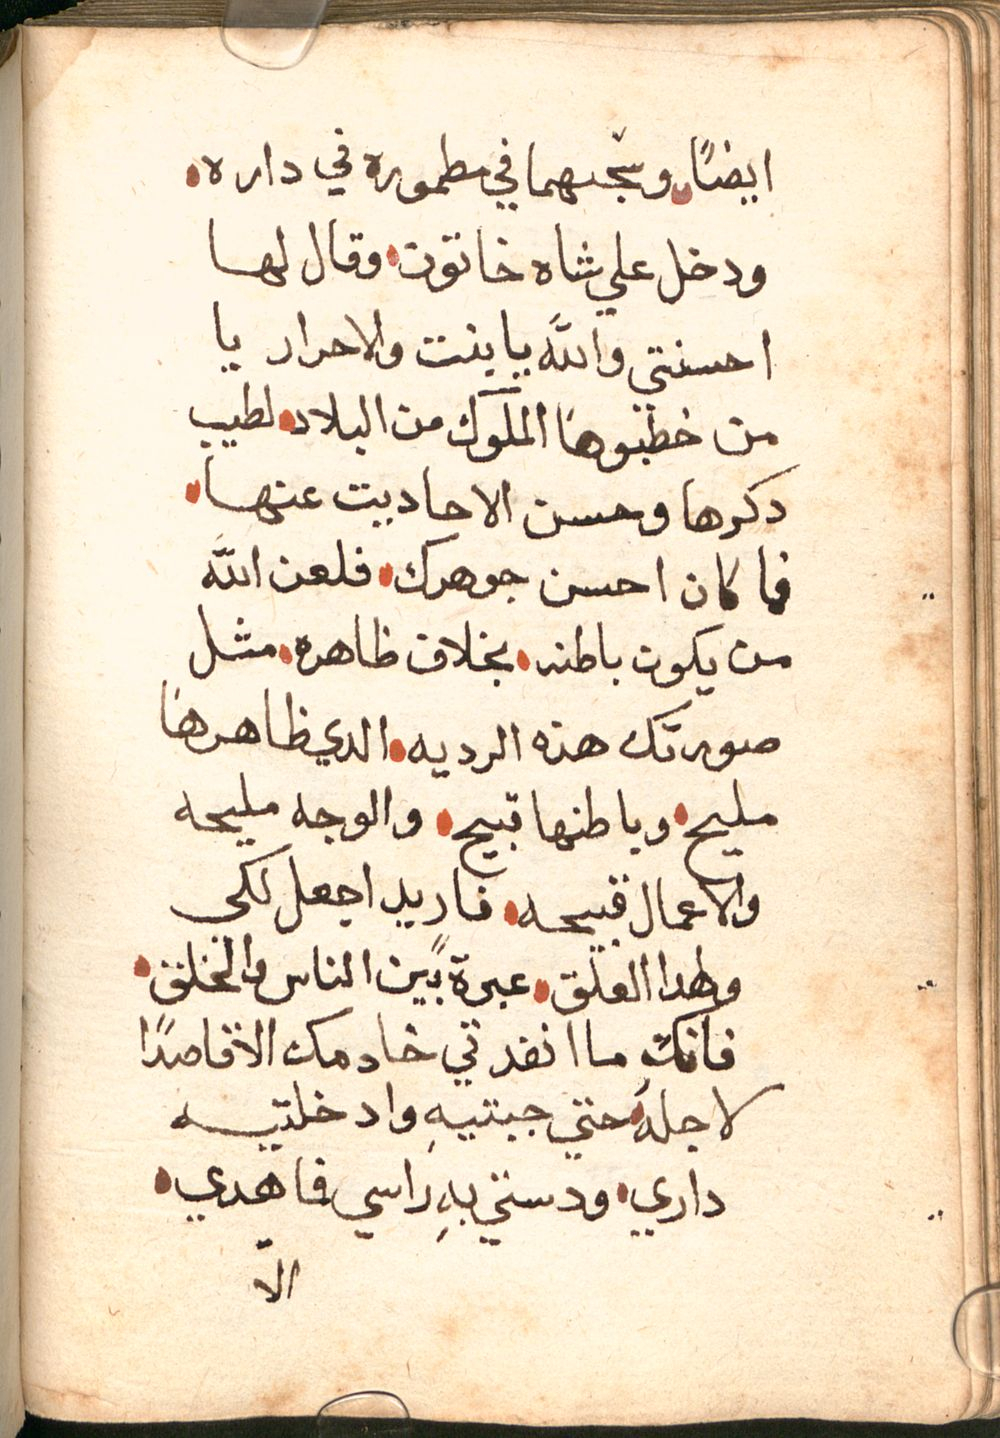 ايضًا. وسجنهما في مطموره في داره.
ودخل علي شاه خاتون. وقال لها
احسنتي والله يا بنت والاحرار يا
من خطبوها الملوك من البلاد. لطيب
دكرها وحسن الاحاديت عنها.
فما كان احسن جوهرك. فلعن الله
من يكون باطنه. بخلاف ظاهره. مثل
صورتك هذه الرديه. الدي ظاهرها
مليح. وباطنها قبيح. والوجه مليحه
والاعمال قبيحه. فاريد اجعل لكي
ولهدا العلق. عبرةً بين الناس والخلق.
فانكِ ما انفدتي خادمك الا قاصدًا
لاجله. حتي جبتيهِ وادخلتيه
داري. ودستي بهِ راسي فاهدي.
الا